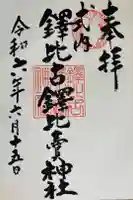 奉拝
式内
鐸比古鐸比賣神社
令和六年六月十五日